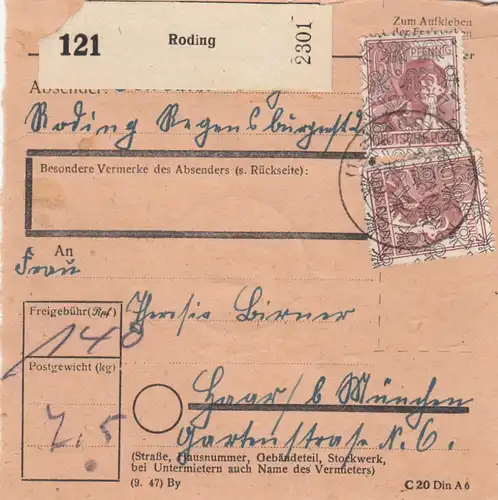 121
Roding
2301
Zum Aufkleben
Absender:
PFENNIG
Roding Regensburgerst
DEUTSCHE POST
Besondere Vermerke des Absenders (s. Rückseite):
An
Frau
Freigebühr (Rpf)
140
Theresia Birner
Postgewicht (kg)
7,5
Haar / b München
Gartenstrasse N. 6.
(Straße, Hausnummer, Gebäudeteil, Stockwerk,
bei Untermietern auch Name des Vermieters)
(9. 47) By
C 20 Din A 6